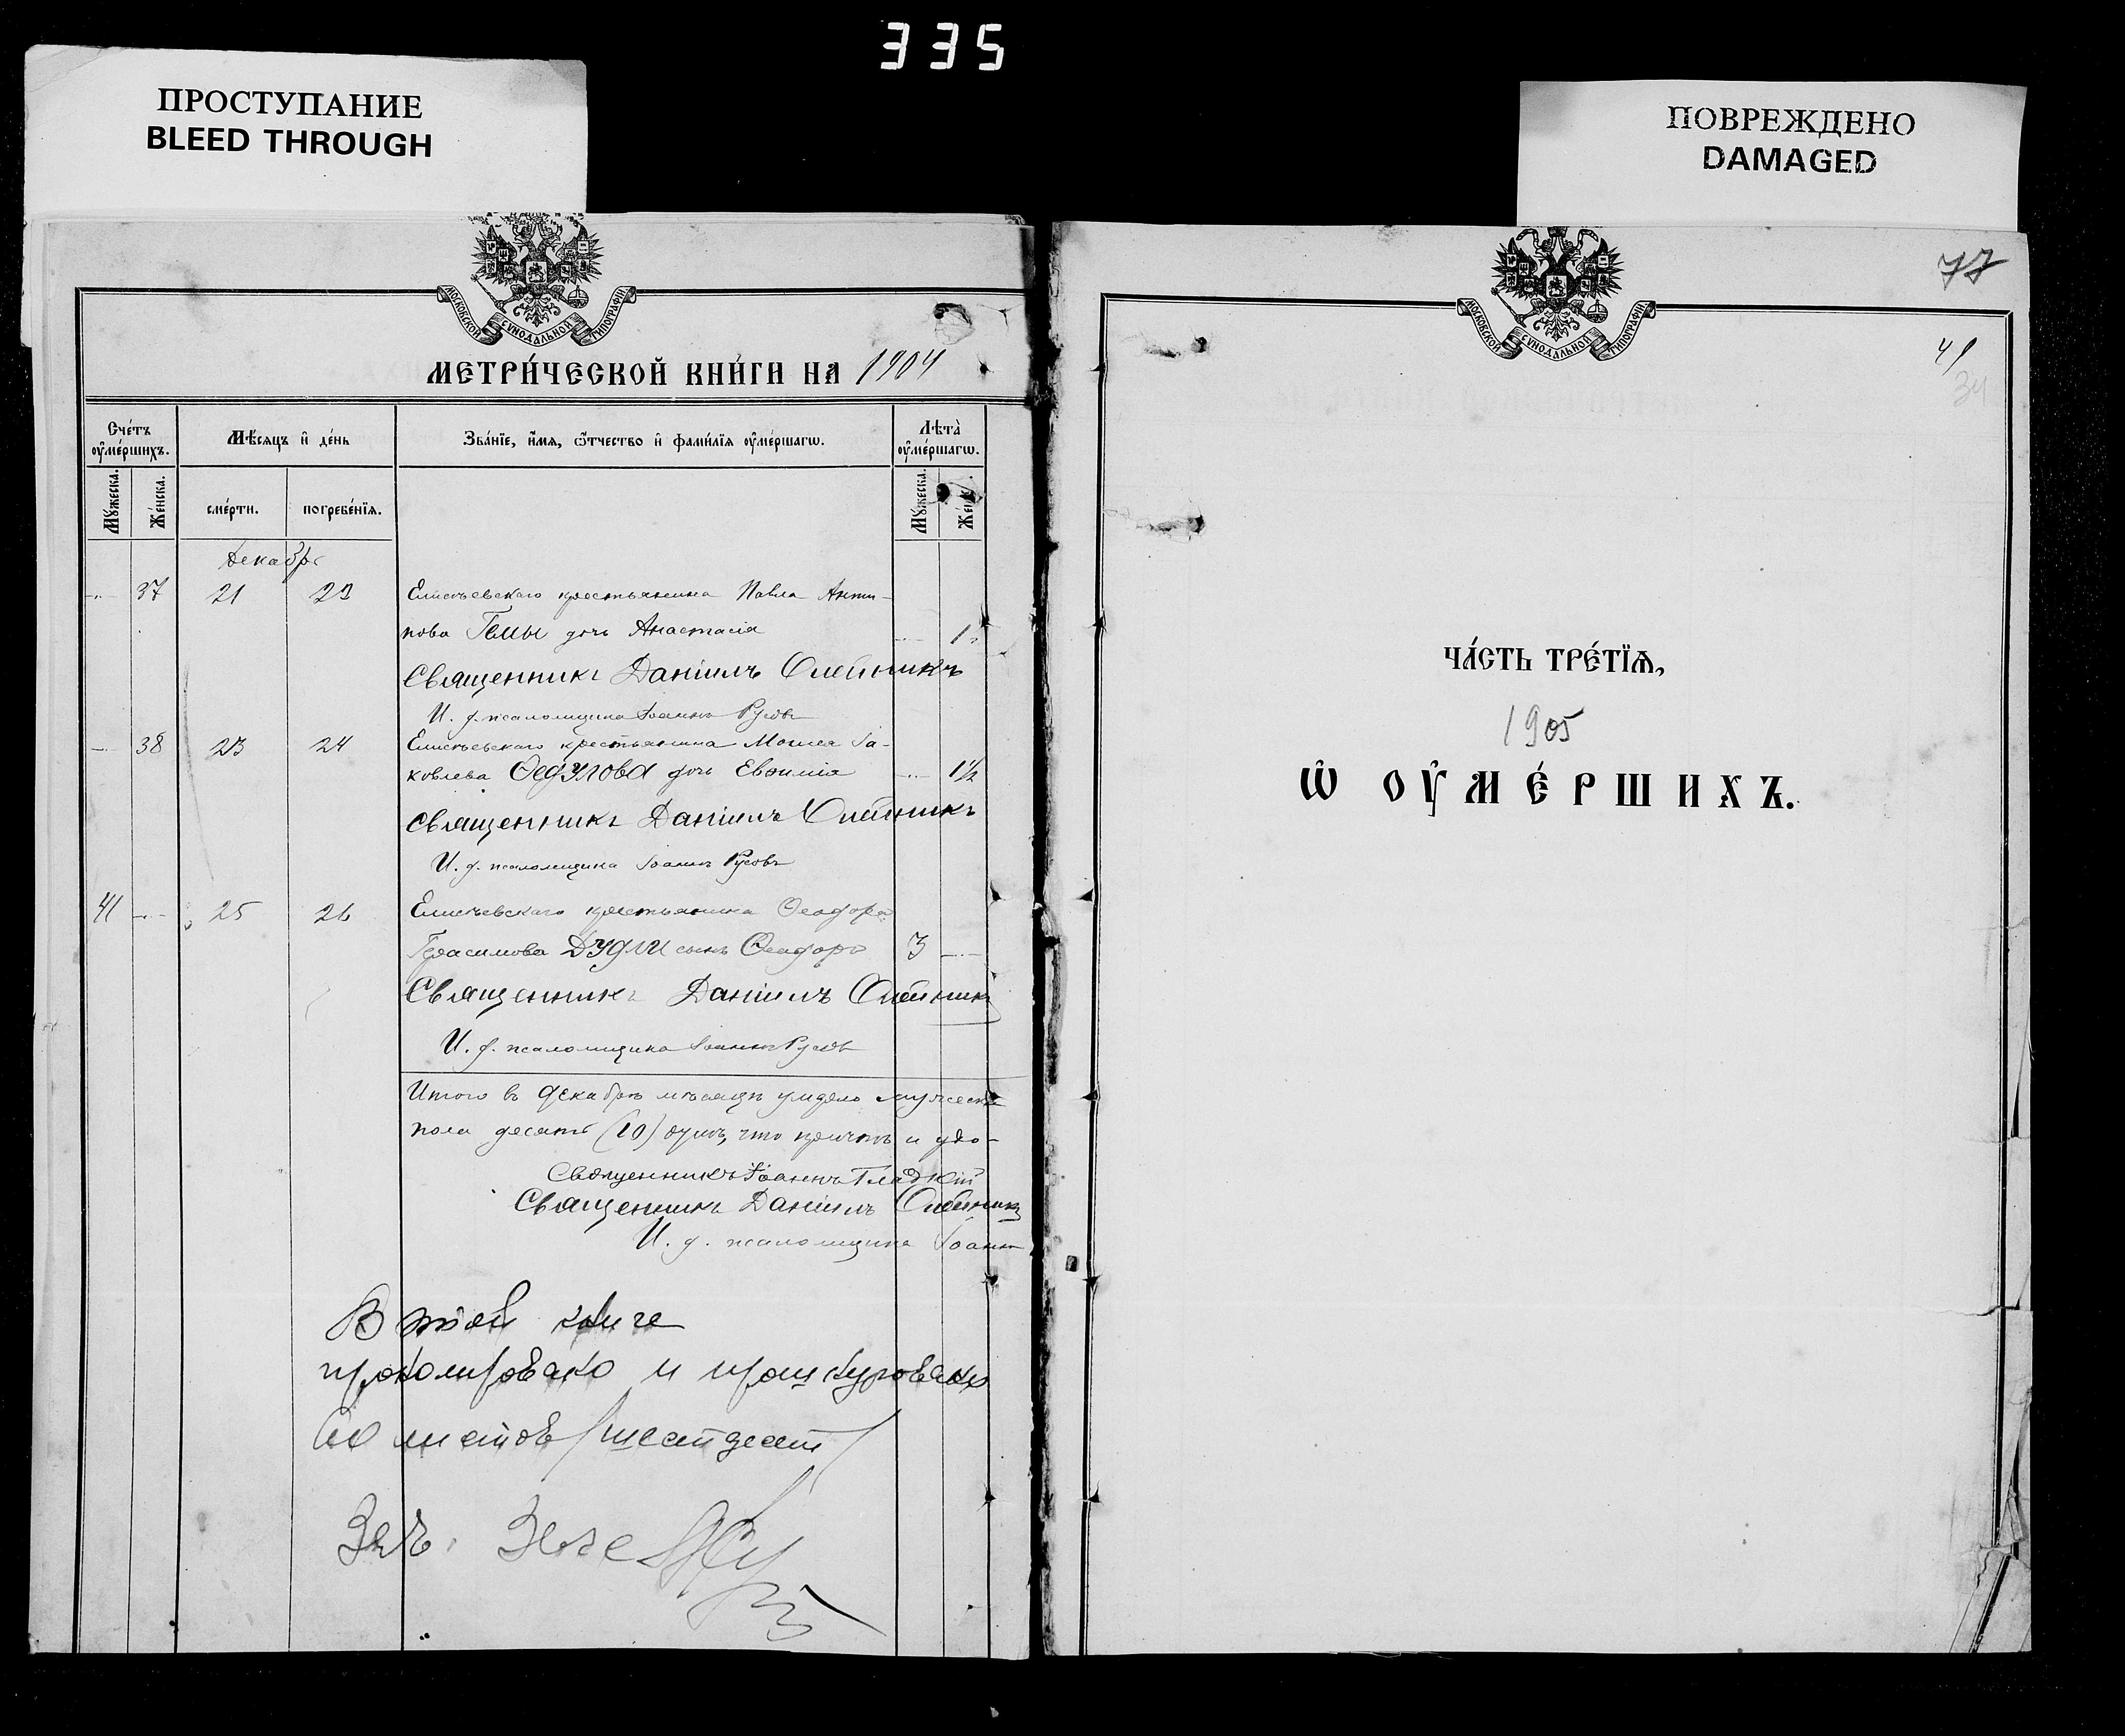 335
ПРОСТУПАНИЕ
BLEED THROUGH
ПОВРЕЖДЕНО
DAMAGED
МОСКОВСКОЙ СѴНОДАЛЬНОЙ ТИПОГРАФІИ
МЕТРИ́ЧЕСКОЙ КНИ́ГИ НА 1904
Сче́тъ оу҆ме́ршихъ.
Мѣ́сяцъ и҆ де́нь
Зва́нїе, и҆́мя, ѻ҆́тчество и҆ фами́лїя оу҆ме́ршагѡ.
Лѣта̀ оу҆ме́ршагѡ.
Мꙋ́жеска.
Же́нска.
сме́рти.
погребе́нїѧ.
Мꙋ́жеска.
Же́нс
Декабрь
37 21 23 Елисѣевскаго крестьянина Павла Анти-
пова Гамы дочь Анастасія 1
Священникъ Даніилъ Олейникъ
И. д. псаломщика Іоаннъ Русовъ
38 23 24 Елисѣевскаго крестьянина Моисея Іа-
ковлева Ѳедулова дочь Евѳимія 1½
Священникъ Даніилъ Олейникъ
И. д. псаломщика Іоаннъ Русовъ
41 25 26 Елисѣевскаго крестьянина Ѳеодора
Герасимова Дудли сынъ Ѳеодоръ 3
Священникъ Даніилъ Олейникъ
И. д. псаломщика Іоаннъ Русовъ
Итого въ декабрѣ мѣсяцѣ умерло мужеска
пола десять (10) душъ, что причтъ и удо-
Священникъ Іоаннъ Гладкій
Священникъ Даніилъ Олейникъ
И. д. псаломщика Іоаннъ
В этой книге
прономеровано и прошнуровано
60 листов (шестдесят)
Зав.
77
МОСКОВСКОЙ СѴНОДАЛЬНОЙ ТИПОГРАФІИ
41
34
ЧА́СТЬ ТРЕ́ТЇѦ,
1905
Ѡ҆ ОУ҆МЕ́РШИХЪ.